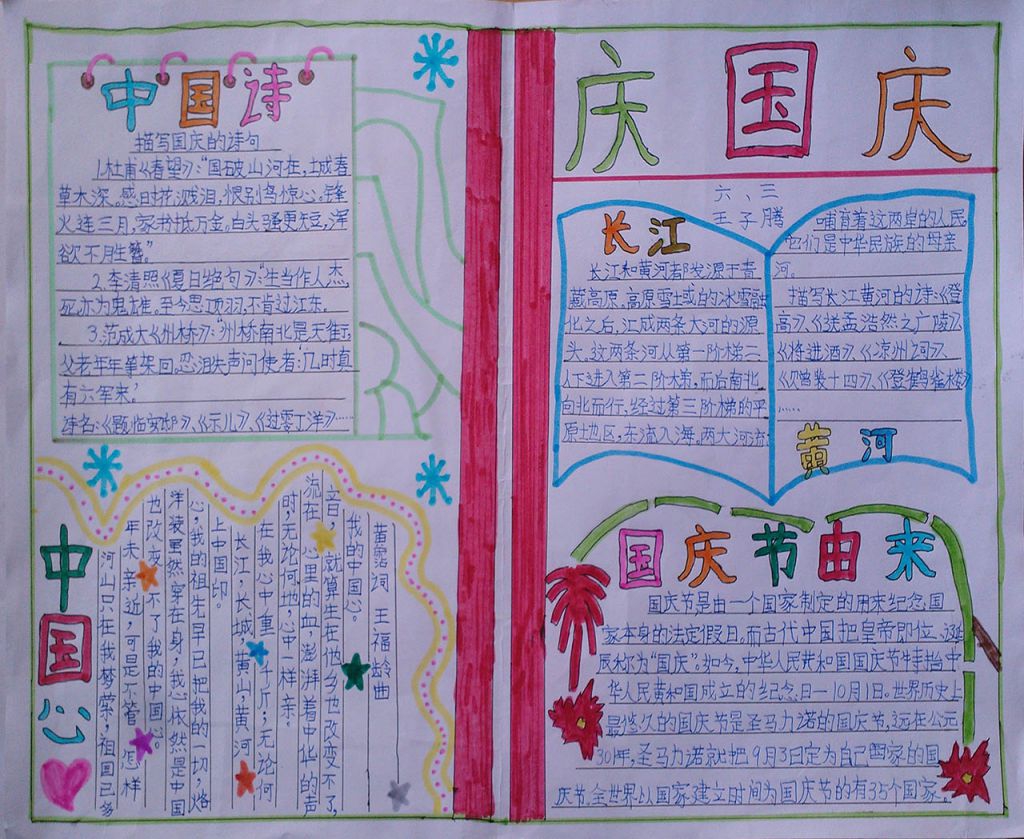 中国诗
描写国庆的诗句
1.杜甫《春望》:“国破山河在,城春
草木深。感时花溅泪,恨别鸟惊心。锋
火连三月,家书抵万金。白头骚更短,浑
欲不月生簪。”
2.李清照《夏日绝句》:“生当作人杰,
死亦为鬼雄。至今思项羽,不肯过江东。
3.范成大《州桥》:“州桥南北是天街,
父老年年等架回,忍泪失声问使者:‘几时真
有六军来’
诗名:《题临安邸》、《示儿》、《过零丁洋》……
中国心
黄霑词 王福龄曲
我的中国心。
音,就算生在他乡也改变不了,
流在心里的血,澎湃着中华的声
时,无论何地,心中一样亲。
在我心中重千斤;无论何
长江,长城,黄山,黄河
上中国印。
心,我的祖先早已把我的一切,烙
洋装虽然穿在身,我心依然是中国
也改变不了我的中国心。
年未亲近,可是不管怎样
河山只在我梦萦,祖国已多
国庆
六、三
王子腾
长江
长江和黄河都发源于青
藏高原、高原雪域的冰雪融
化之后,汇成两条大河的源
头,这两条河从第一阶梯二
人下进入第二阶梯,而后南北
向北而行,经过第三阶梯的平
原土地区,东流入海,两大河流
哺育着这两岸的人民
它们是中华民族的母亲
河。
描写长江黄河的诗:《登
高》、《送孟浩然之广陵》、
《将进酒》、《凉州词》、
《登鹳雀楼》
……
黄河
国庆节由来
国庆节是由一个国家制定的用来纪念国
家本身的法定假日。而古代中国把皇帝即位、诞
辰称为“国庆”。如今,中华人民共和国国庆节特指中
华人民共和国成立的纪念日一10月1日。世界历史上
最悠久的国庆节是圣马力诺的国庆节,远在公元
301年,圣马力诺就把9月3日定为自己国家的国
庆节,全世界以国家建立时间为国庆节的有35个国家。